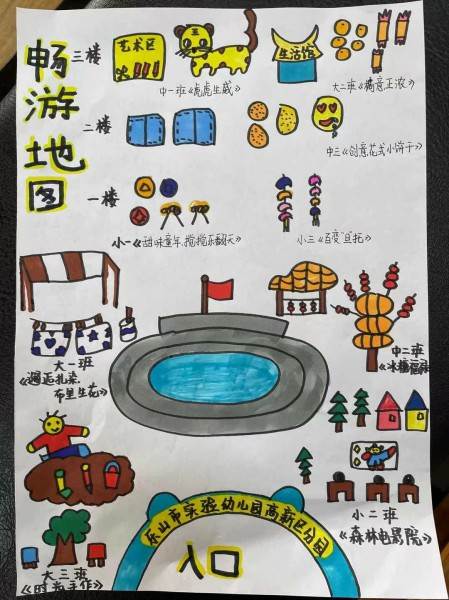 畅游地图
三楼
艺术区
生活馆
中一班《虎虎生威》
大二班《橘意正浓》
二楼
中三《创意花式小饼干》
一楼
小一《甜味童年,搅搅乐翻天》
小三《百变"豆"托》
大一班
《邂逅扎染,
布里生花》
中二班
《冰糖葫芦》
小二班
《森林电影院》
大三班
《时尚手作》
乐山市实验幼儿园高新区分园
入口